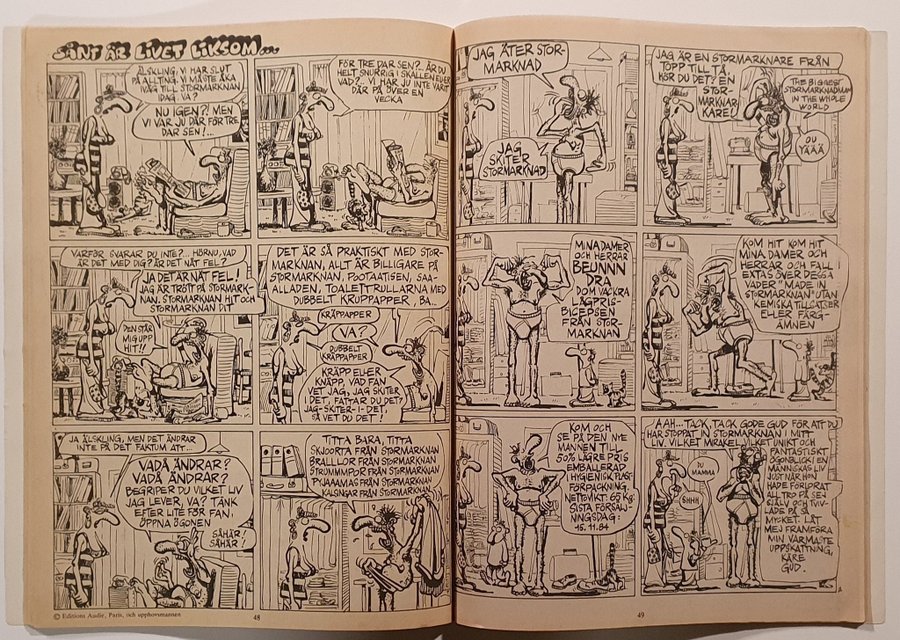 SÅNT ÄR LIVET LIKSOM...
ÄLSKLING, VI HAR SLUT
PÅ ALLTING. VI MÅSTE ÅKA
IVÄG TILL STORMARKNAN
IDAG. VA?
NU IGEN?! MEN
VI VAR JU DÄR FÖR TRE
DAR SEN!...
FÖR TRE DAR SEN?. ÄR DU
HELT SNURRIG I SKALLEN ELLER
VAD?.. VI HAR JU INTE VARIT
DÄR PÅ ÖVER EN
VECKA
VARFÖR SVARAR DU INTE?... HÖRNU, VAD
ÄR DET MED DIG? ÄR DET NÅT FEL?
JA DET ÄR NÅT FEL!
JAG ÄR TRÖTT PÅ STORMARK-
NAN, STORMARKNAN HIT OCH
STORMARKNAN DIT
DEN STÅR
MIG UPP
HIT!!
DET ÄR SÅ PRAKTISKT MED STOR-
MARKNAN, ALLT ÄR BILLIGARE PÅ
STORMARKNAN, POOTAATISEN, SAA-
ALLADEN, TOALETTRULLARNA MED
DUBBELT KRUPPAPPER, BA..
KRÄPPAPPER
VA?
DUBBELT
KRÄPPAPPER
KRÄPP ELLER
KNÄPP, VAD FAN
VET JAG, JAG SKITER
I DET, FATTAR DU DET?
JAG-SKITER-I-DET,
SÅ VET DU DET!
JA ÄLSKLING, MEN DET ÄNDRAR
INTE PÅ DET FAKTUM ATT...
VADÅ ÄNDRAR?
VADÅ ÄNDRAR?
BEGRIPER DU VILKET LIV
JAG LEVER, VA? TÄNK
EFTER LITE FÖR FAN.
ÖPPNA ÖGONEN
SÅHÄR!
SÅHÄR!
TITTA BARA, TITTA
SKJOORTA FRÅN STORMARKNAN
BRALLLOR FRÅN STORMARKNAN
STRUMMMPOR FRÅN STORMARKNAN
PYJAAAMAS FRÅN STORMARKNAN
KALSINGAR FRÅN STORMARKNAN
© Editions Audie, Paris, och upphovsmannen
48
JAG ÄTER STOR-
MARKNAD
JAG
SKITER
STORMARKNAD
JAG ÄR EN STORMARKNARE FRÅN
TOPP TILL TÅ,
HÖR DU DET? EN
STOR-
MARKNAR-
KARE!
THE BIGGEST
STORMARKNADMAN
IN THE WHOLE
WORLD
OU
YÄÄÄ
MINA DAMER
OCH HERRAR
BEUNNN
DRA
DOM VACKRA
LÅGPRIS-
BICEPSEN
FRÅN STOR-
MARKNAN
KOM HIT KOM HIT
MINA DAMER OCH
HERRAR OCH FALL I
EXTAS ÖVER DESSA
VADER "MADE IN
STORMARKNAN" UTAN
KEMISKA TILLSATSER
ELLER FÄRG-
ÄMNEN
KOM OCH
SE PÅ DEN NYE
MANNEN TILL
50% LÄGRE PRIS
EMBALLERAD
I HYGIENISK PLAST-
FÖRPACKNING.
NETTOVIKT: 65 KG.
SISTA FÖRSÄLJ-
NINGSDAG:
15.11.84
AAH... TACK, TACK GODE GUD FÖR ATT DU
HAR STOPPAT IN STORMARKNAN I MITT
LIV. VILKET MIRAKEL, VILKET UNIKT OCH
FANTASTISKT
ÖGONBLICK I EN
MÄNNISKAS LIV
JUST NÄR HON
HADE FÖRLORAT
ALLTRO PÅ SEJ
SJÄLV OCH TVIV-
LADE PÅ SÅ
MYCKET. LÅT
MEJ FRAMFÖRA
MIN VARMASTE
UPPSKATTNING,
KÄRE
GUD.
MAMMA
SHHH
49